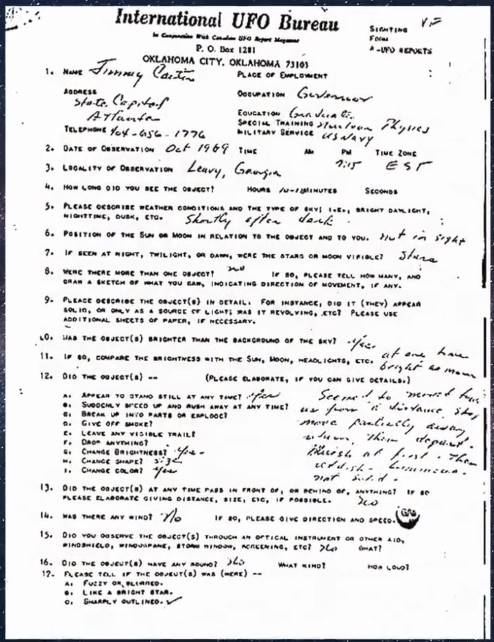 International UFO Bureau
In Cooperation With Canadian UFO Report Magazine
P. O. Box 1281
OKLAHOMA CITY, OKLAHOMA 73103
SIGHTING
FORM
A-UFO REPORTS
1. NAME Jimmy Carter PLACE OF EMPLOYMENT
ADDRESS OCCUPATION Governor
State Capitol
Atlanta EDUCATION Graduate
SPECIAL TRAINING Nuclear Physics
TELEPHONE 404-656-1776 MILITARY SERVICE US Navy
2. DATE OF OBSERVATION Oct 1969 TIME AM PM TIME ZONE
7:15 EST
3. LOCALITY OF OBSERVATION Leary, Georgia
4. HOW LONG DID YOU SEE THE OBJECT? HOURS 10-12 MINUTES SECONDS
5. PLEASE DESCRIBE WEATHER CONDITIONS AND THE TYPE OF SKY; I.E., BRIGHT DAYLIGHT,
NIGHTTIME, DUSK, ETC. Shortly after dark.
6. POSITION OF THE SUN OR MOON IN RELATION TO THE OBJECT AND TO YOU. Not in sight
7. IF SEEN AT NIGHT, TWILIGHT, OR DAWN, WERE THE STARS OR MOON VISIBLE? Stars
8. WERE THERE MORE THAN ONE OBJECT? no IF SO, PLEASE TELL HOW MANY, AND
DRAW A SKETCH OF WHAT YOU SAW, INDICATING DIRECTION OF MOVEMENT, IF ANY.
9. PLEASE DESCRIBE THE OBJECT(S) IN DETAIL. FOR INSTANCE, DID IT (THEY) APPEAR
SOLID, OR ONLY AS A SOURCE OF LIGHT; WAS IT REVOLVING, ETC? PLEASE USE
ADDITIONAL SHEETS OF PAPER, IF NECESSARY.
10. WAS THE OBJECT(S) BRIGHTER THAN THE BACKGROUND OF THE SKY? yes
11. IF SO, COMPARE THE BRIGHTNESS WITH THE SUN, MOON, HEADLIGHTS, ETC. at one time
bright as moon
12. DID THE OBJECT(S) -- (PLEASE ELABORATE, IF YOU CAN GIVE DETAILS.)
A. APPEAR TO STAND STILL AT ANY TIME? yes
B. SUDDENLY SPEED UP AND RUSH AWAY AT ANY TIME?
C. BREAK UP INTO PARTS OR EXPLODE?
D. GIVE OFF SMOKE?
E. LEAVE ANY VISIBLE TRAIL?
F. DROP ANYTHING?
G. CHANGE BRIGHTNESS? yes
H. CHANGE SHAPE? size
I. CHANGE COLOR? yes
Seemed to move toward
us from a distance, stop
move partially away
return, then depart.
Bluish at first - then
reddish - luminous -
not solid -
13. DID THE OBJECT(S) AT ANY TIME PASS IN FRONT OF, OR BEHIND OF, ANYTHING? IF SO
PLEASE ELABORATE GIVING DISTANCE, SIZE, ETC, IF POSSIBLE. no
14. WAS THERE ANY WIND? No IF SO, PLEASE GIVE DIRECTION AND SPEED.
15. DID YOU OBSERVE THE OBJECT(S) THROUGH AN OPTICAL INSTRUMENT OR OTHER AID,
WINDSHIELD, WINDOWPANE, STORM WINDOW, SCREENING, ETC? No WHAT?
16. DID THE OBJECT(S) HAVE ANY SOUND? No WHAT KIND? HOW LOUD?
17. PLEASE TELL IF THE OBJECT(S) WAS (WERE) --
A. FUZZY OR BLURRED.
B. LIKE A BRIGHT STAR.
C. SHARPLY OUTLINED.